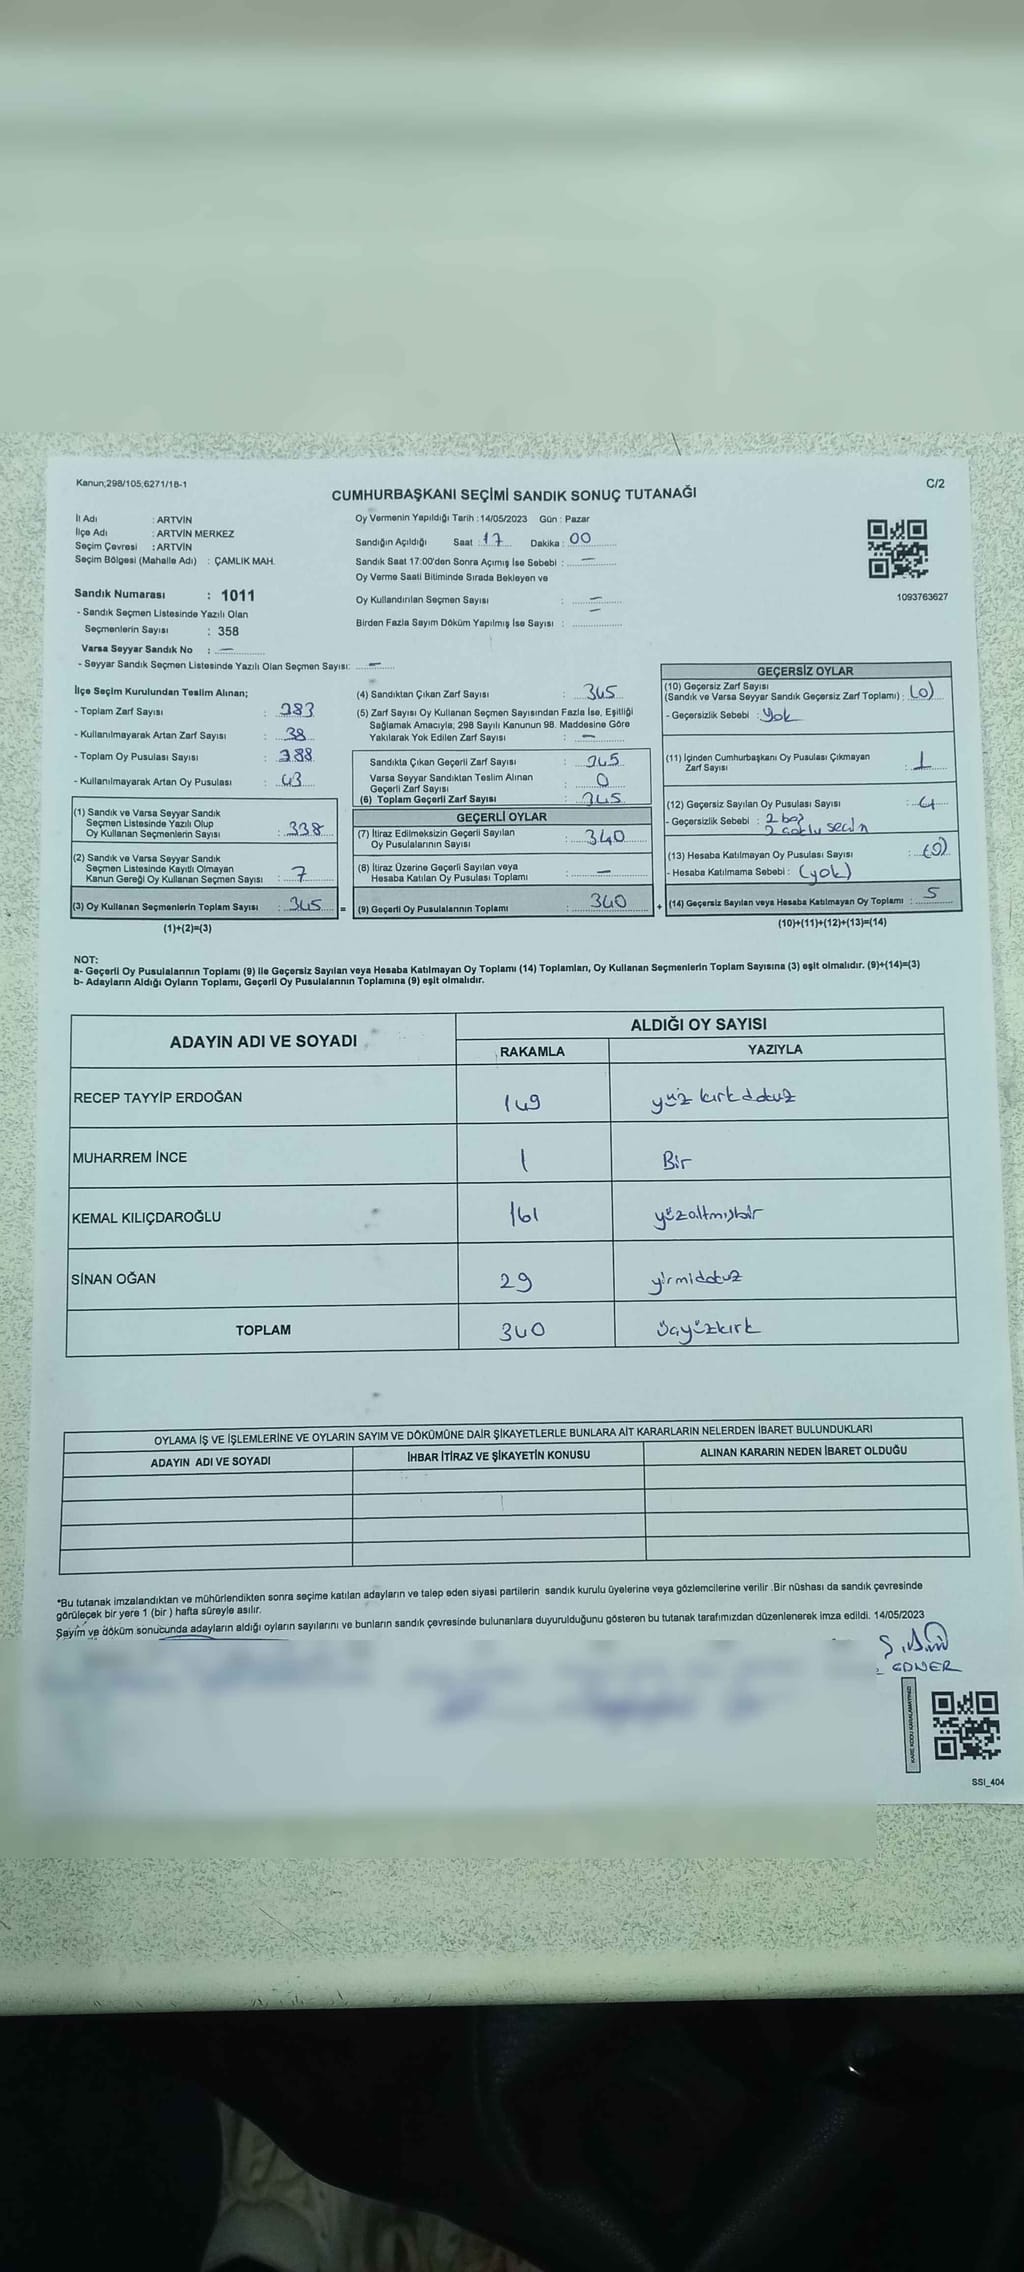 Kanun;298/105;6271/18-1
C/2
CUMHURBAŞKANI SEÇİMİ SANDIK SONUÇ TUTANAĞI
İl Adı : ARTVİN
İlçe Adı : ARTVİN MERKEZ
Seçim Çevresi : ARTVİN
Seçim Bölgesi (Mahalle Adı) : ÇAMLIK MAH.
Sandık Numarası : 1011
- Sandık Seçmen Listesinde Yazılı Olan
Seçmenlerin Sayısı : 358
Varsa Seyyar Sandık No : —
- Seyyar Sandık Seçmen Listesinde Yazılı Olan Seçmen Sayısı: —
Oy Vermenin Yapıldığı Tarih : 14/05/2023 Gün : Pazar
Sandığın Açıldığı Saat : 17 Dakika : 00
Sandık Saat 17:00'den Sonra Açımış İse Sebebi : —
Oy Verme Saati Bitiminde Sırada Bekleyen ve
Oy Kullandırılan Seçmen Sayısı : —
Birden Fazla Sayım Döküm Yapılmış İse Sayısı : —
1093763627
İlçe Seçim Kurulundan Teslim Alınan;
- Toplam Zarf Sayısı : 383
- Kullanılmayarak Artan Zarf Sayısı : 38
- Toplam Oy Pusulası Sayısı : 388
- Kullanılmayarak Artan Oy Pusulası : 43
(1) Sandık ve Varsa Seyyar Sandık
Seçmen Listesinde Yazılı Olup
Oy Kullanan Seçmenlerin Sayısı : 338
(2) Sandık ve Varsa Seyyar Sandık
Seçmen Listesinde Kayıtlı Olmayan
Kanun Gereği Oy Kullanan Seçmen Sayısı : 7
(3) Oy Kullanan Seçmenlerin Toplam Sayısı : 345 =
(1)+(2)=(3)
(4) Sandıktan Çıkan Zarf Sayısı : 345
(5) Zarf Sayısı Oy Kullanan Seçmen Sayısından Fazla İse, Eşitliği
Sağlamak Amacıyla; 298 Sayılı Kanunun 98. Maddesine Göre
Yakılarak Yok Edilen Zarf Sayısı : —
Sandıkta Çıkan Geçerli Zarf Sayısı : 345
Varsa Seyyar Sandıktan Teslim Alınan
Geçerli Zarf Sayısı : 0
(6) Toplam Geçerli Zarf Sayısı : 345
GEÇERLİ OYLAR
(7) İtiraz Edilmeksizin Geçerli Sayılan
Oy Pusulalarının Sayısı : 340
(8) İtiraz Üzerine Geçerli Sayılan veya
Hesaba Katılan Oy Pusulası Toplamı : —
(9) Geçerli Oy Pusulalarının Toplamı : 340 +
GEÇERSİZ OYLAR
(10) Geçersiz Zarf Sayısı
(Sandık ve Varsa Seyyar Sandık Geçersiz Zarf Toplamı) : (0)
- Geçersizlik Sebebi : Yok
(11) İçinden Cumhurbaşkanı Oy Pusulası Çıkmayan
Zarf Sayısı : 1
(12) Geçersiz Sayılan Oy Pusulası Sayısı : 4
- Geçersizlik Sebebi : 2 boş
2
(13) Hesaba Katılmayan Oy Pusulası Sayısı : (0)
- Hesaba Katılmama Sebebi : (yok)
(14) Geçersiz Sayılan veya Hesaba Katılmayan Oy Toplamı : 5
(10)+(11)+(12)+(13)=(14)
NOT:
a- Geçerli Oy Pusulalarının Toplamı (9) ile Geçersiz Sayılan veya Hesaba Katılmayan Oy Toplamı (14) Toplamları, Oy Kullanan Seçmenlerin Toplam Sayısına (3) eşit olmalıdır. (9)+(14)=(3)
b- Adayların Aldığı Oyların Toplamı, Geçerli Oy Pusulalarının Toplamına (9) eşit olmalıdır.
ADAYIN ADI VE SOYADI
ALDIĞI OY SAYISI
RAKAMLA YAZIYLA
RECEP TAYYİP ERDOĞAN 149 yüz kırk dokuz
MUHARREM İNCE 1 Bir
KEMAL KILIÇDAROĞLU 161 yüzaltmışbir
SİNAN OĞAN 29 yirmidokuz
TOPLAM 340 üçyüzkırk
OYLAMA İŞ VE İŞLEMLERİNE VE OYLARIN SAYIM VE DÖKÜMÜNE DAİR ŞİKAYETLERLE BUNLARA AİT KARARLARIN NELERDEN İBARET BULUNDUKLARI
ADAYIN ADI VE SOYADI İHBAR İTİRAZ VE ŞİKAYETİN KONUSU ALINAN KARARIN NEDEN İBARET OLDUĞU
*Bu tutanak imzalandıktan ve mühürlendikten sonra seçime katılan adayların ve talep eden siyasi partilerin sandık kurulu üyelerine veya gözlemcilerine verilir .Bir nüshası da sandık çevresinde
görülecek bir yere 1 (bir ) hafta süreyle asılır.
Sayım ve döküm sonucunda adayların aldığı oyların sayılarını ve bunların sandık çevresinde bulunanlara duyurulduğunu gösteren bu tutanak tarafımızdan düzenlenerek imza edildi. 14/05/2023
SSI_404